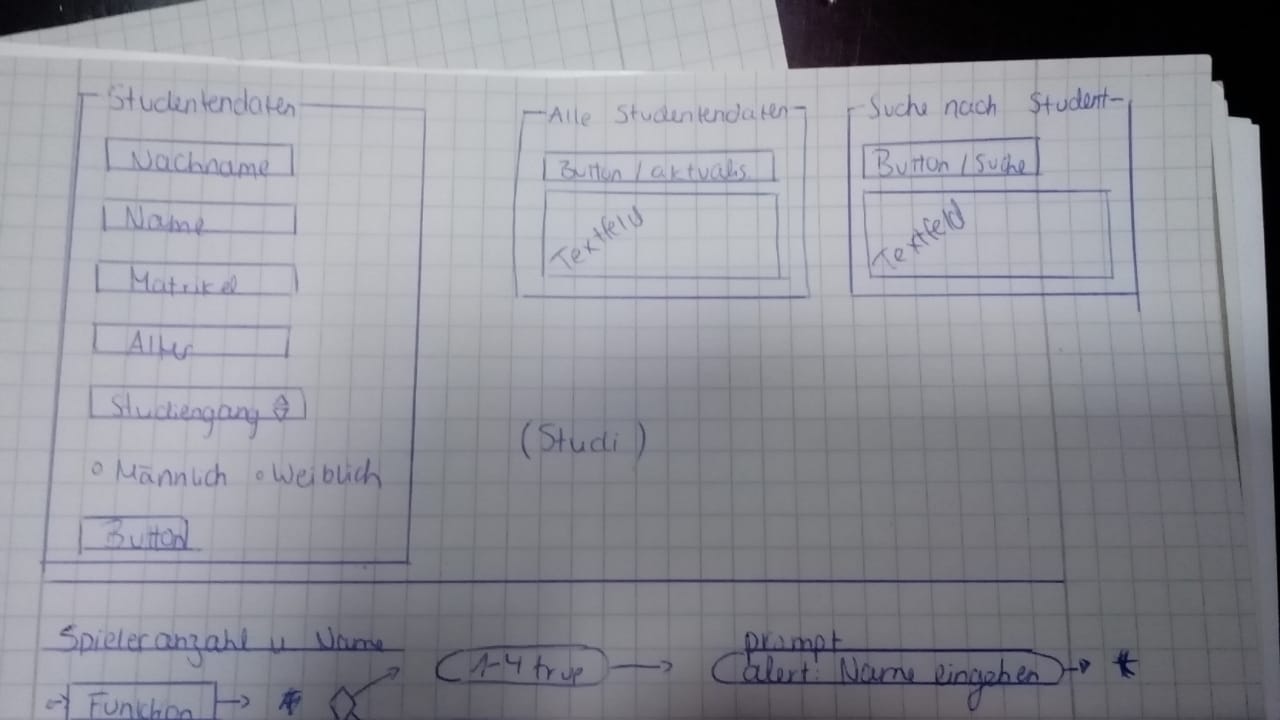 Studentendaten
Nachname
Name
Matrikel
Alter
Studiengang
Männlich Weiblich
Button
Alle Studentendaten
Button / aktualis.
Textfeld
Suche nach Student
Button / Suche
Textfeld
(Studi)
Spieleranzahl u Name
Funktion
1-4 true
prompt
alert: Name eingeben